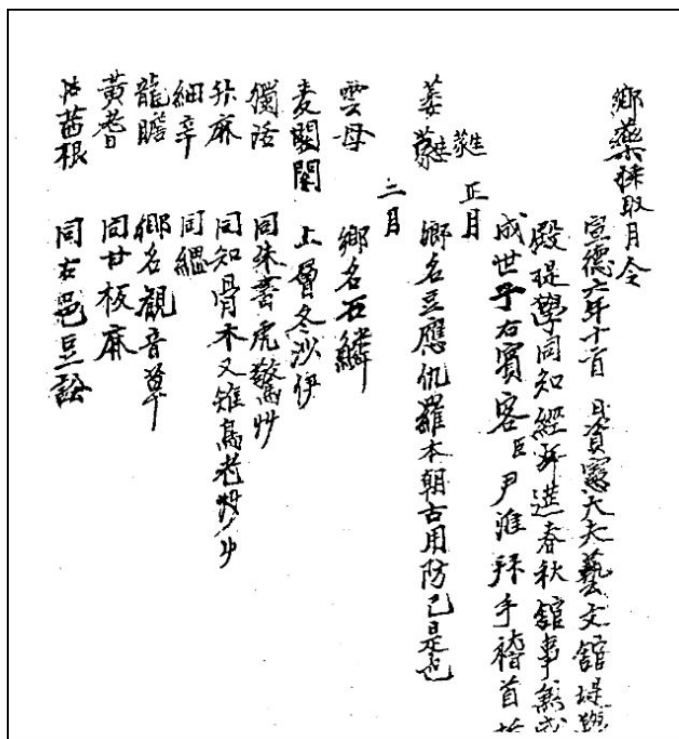 鄕藥採取月令
宣德六年十 日資憲大夫藝文舘提學
殿提學同知經筵春秋舘事兼成
成世子右賓客臣尹淮拜手稽首
正月
鄕名豆應仇羅本朝古用防己是也
二月
雲母 鄕名石鱗
麦 冬沙伊
獨活 同朱書虎驚艸
升麻 同知骨木又雉鳥老艸
細辛 同縕
龍膽 鄕名觀音草
黃耆 同甘板麻
茜根 同右邑豆訟